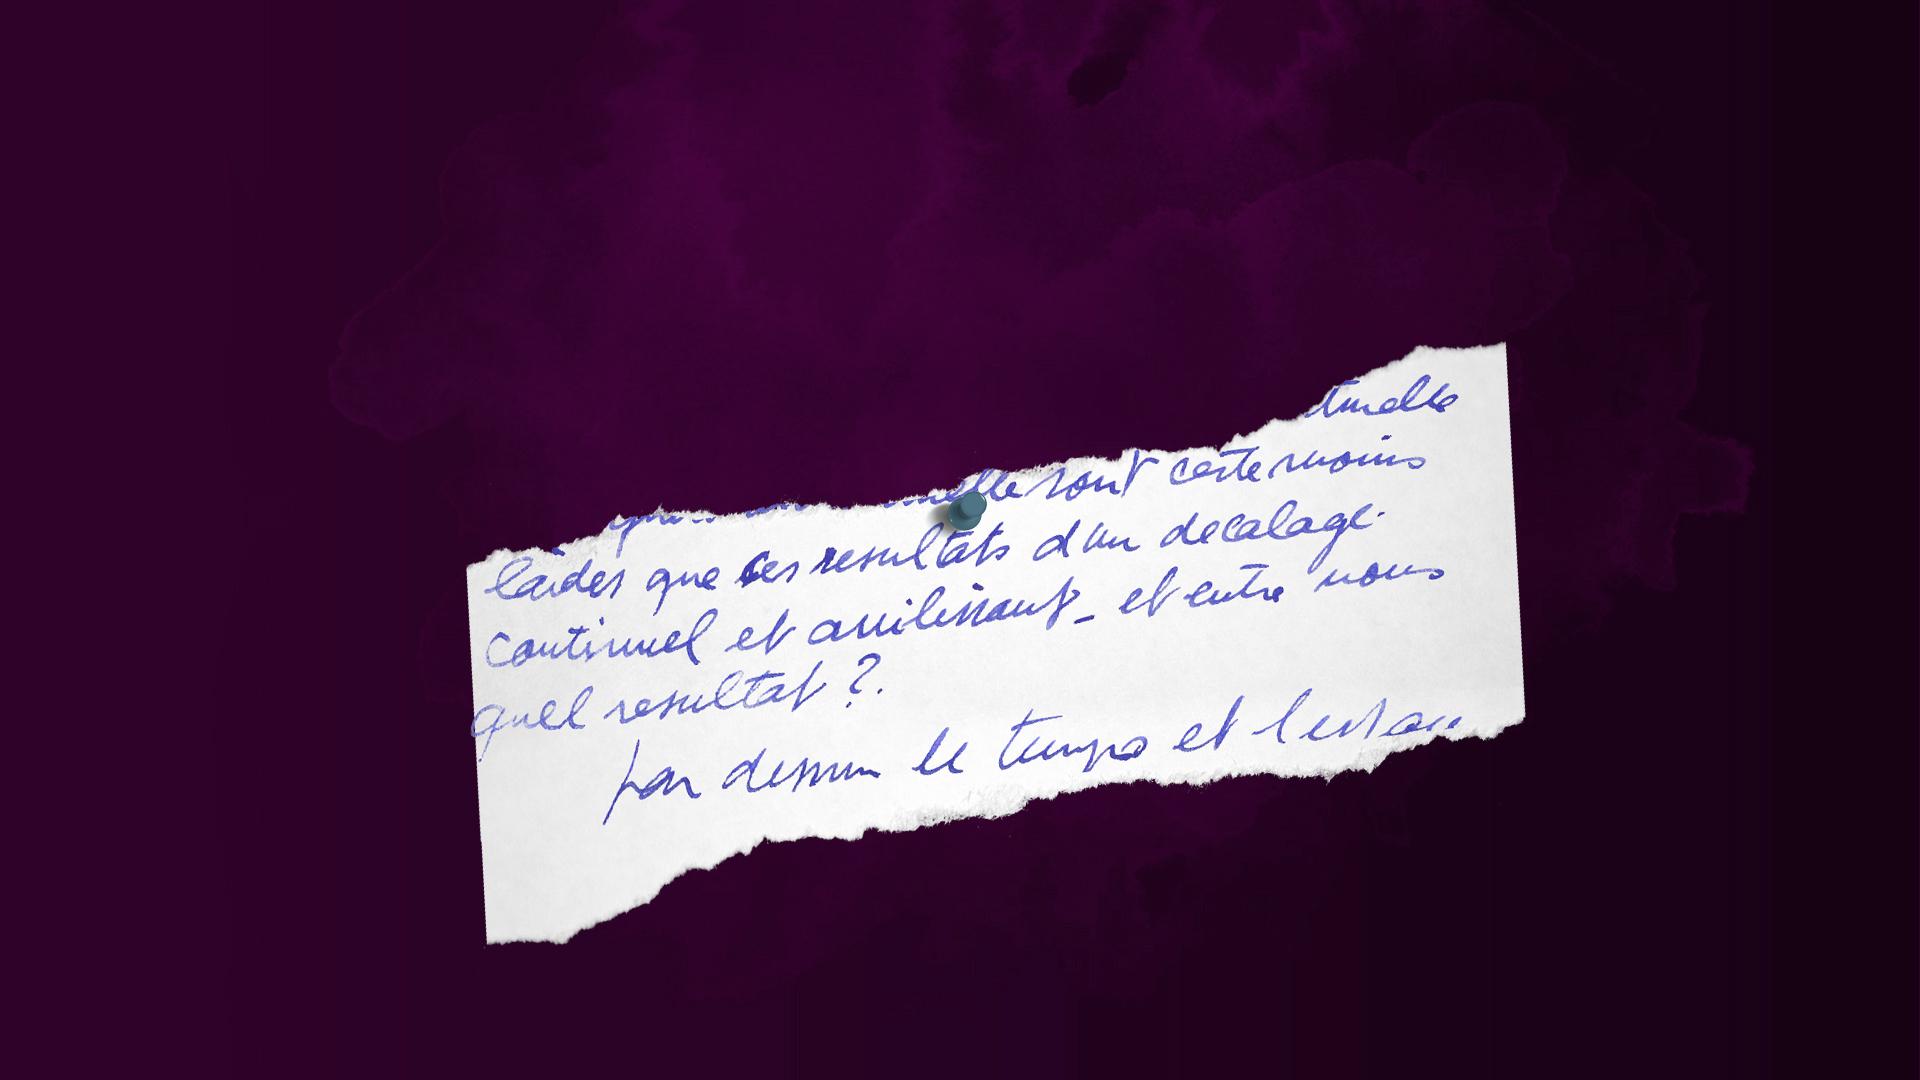 tuelle
elle sont certe moins
laides que ces resultats d'un decalage
continuel et avilissant_ et entre nous
quel resultat ?.
par dessus le temps et l'espace